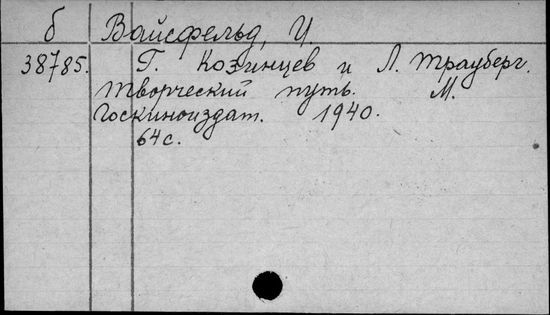 б Вайсфельд, И.
38785. Г. Козинцев и Л. Трауберг.
Творческий путь. М.
Госкиноиздат. 1940.
64 с.